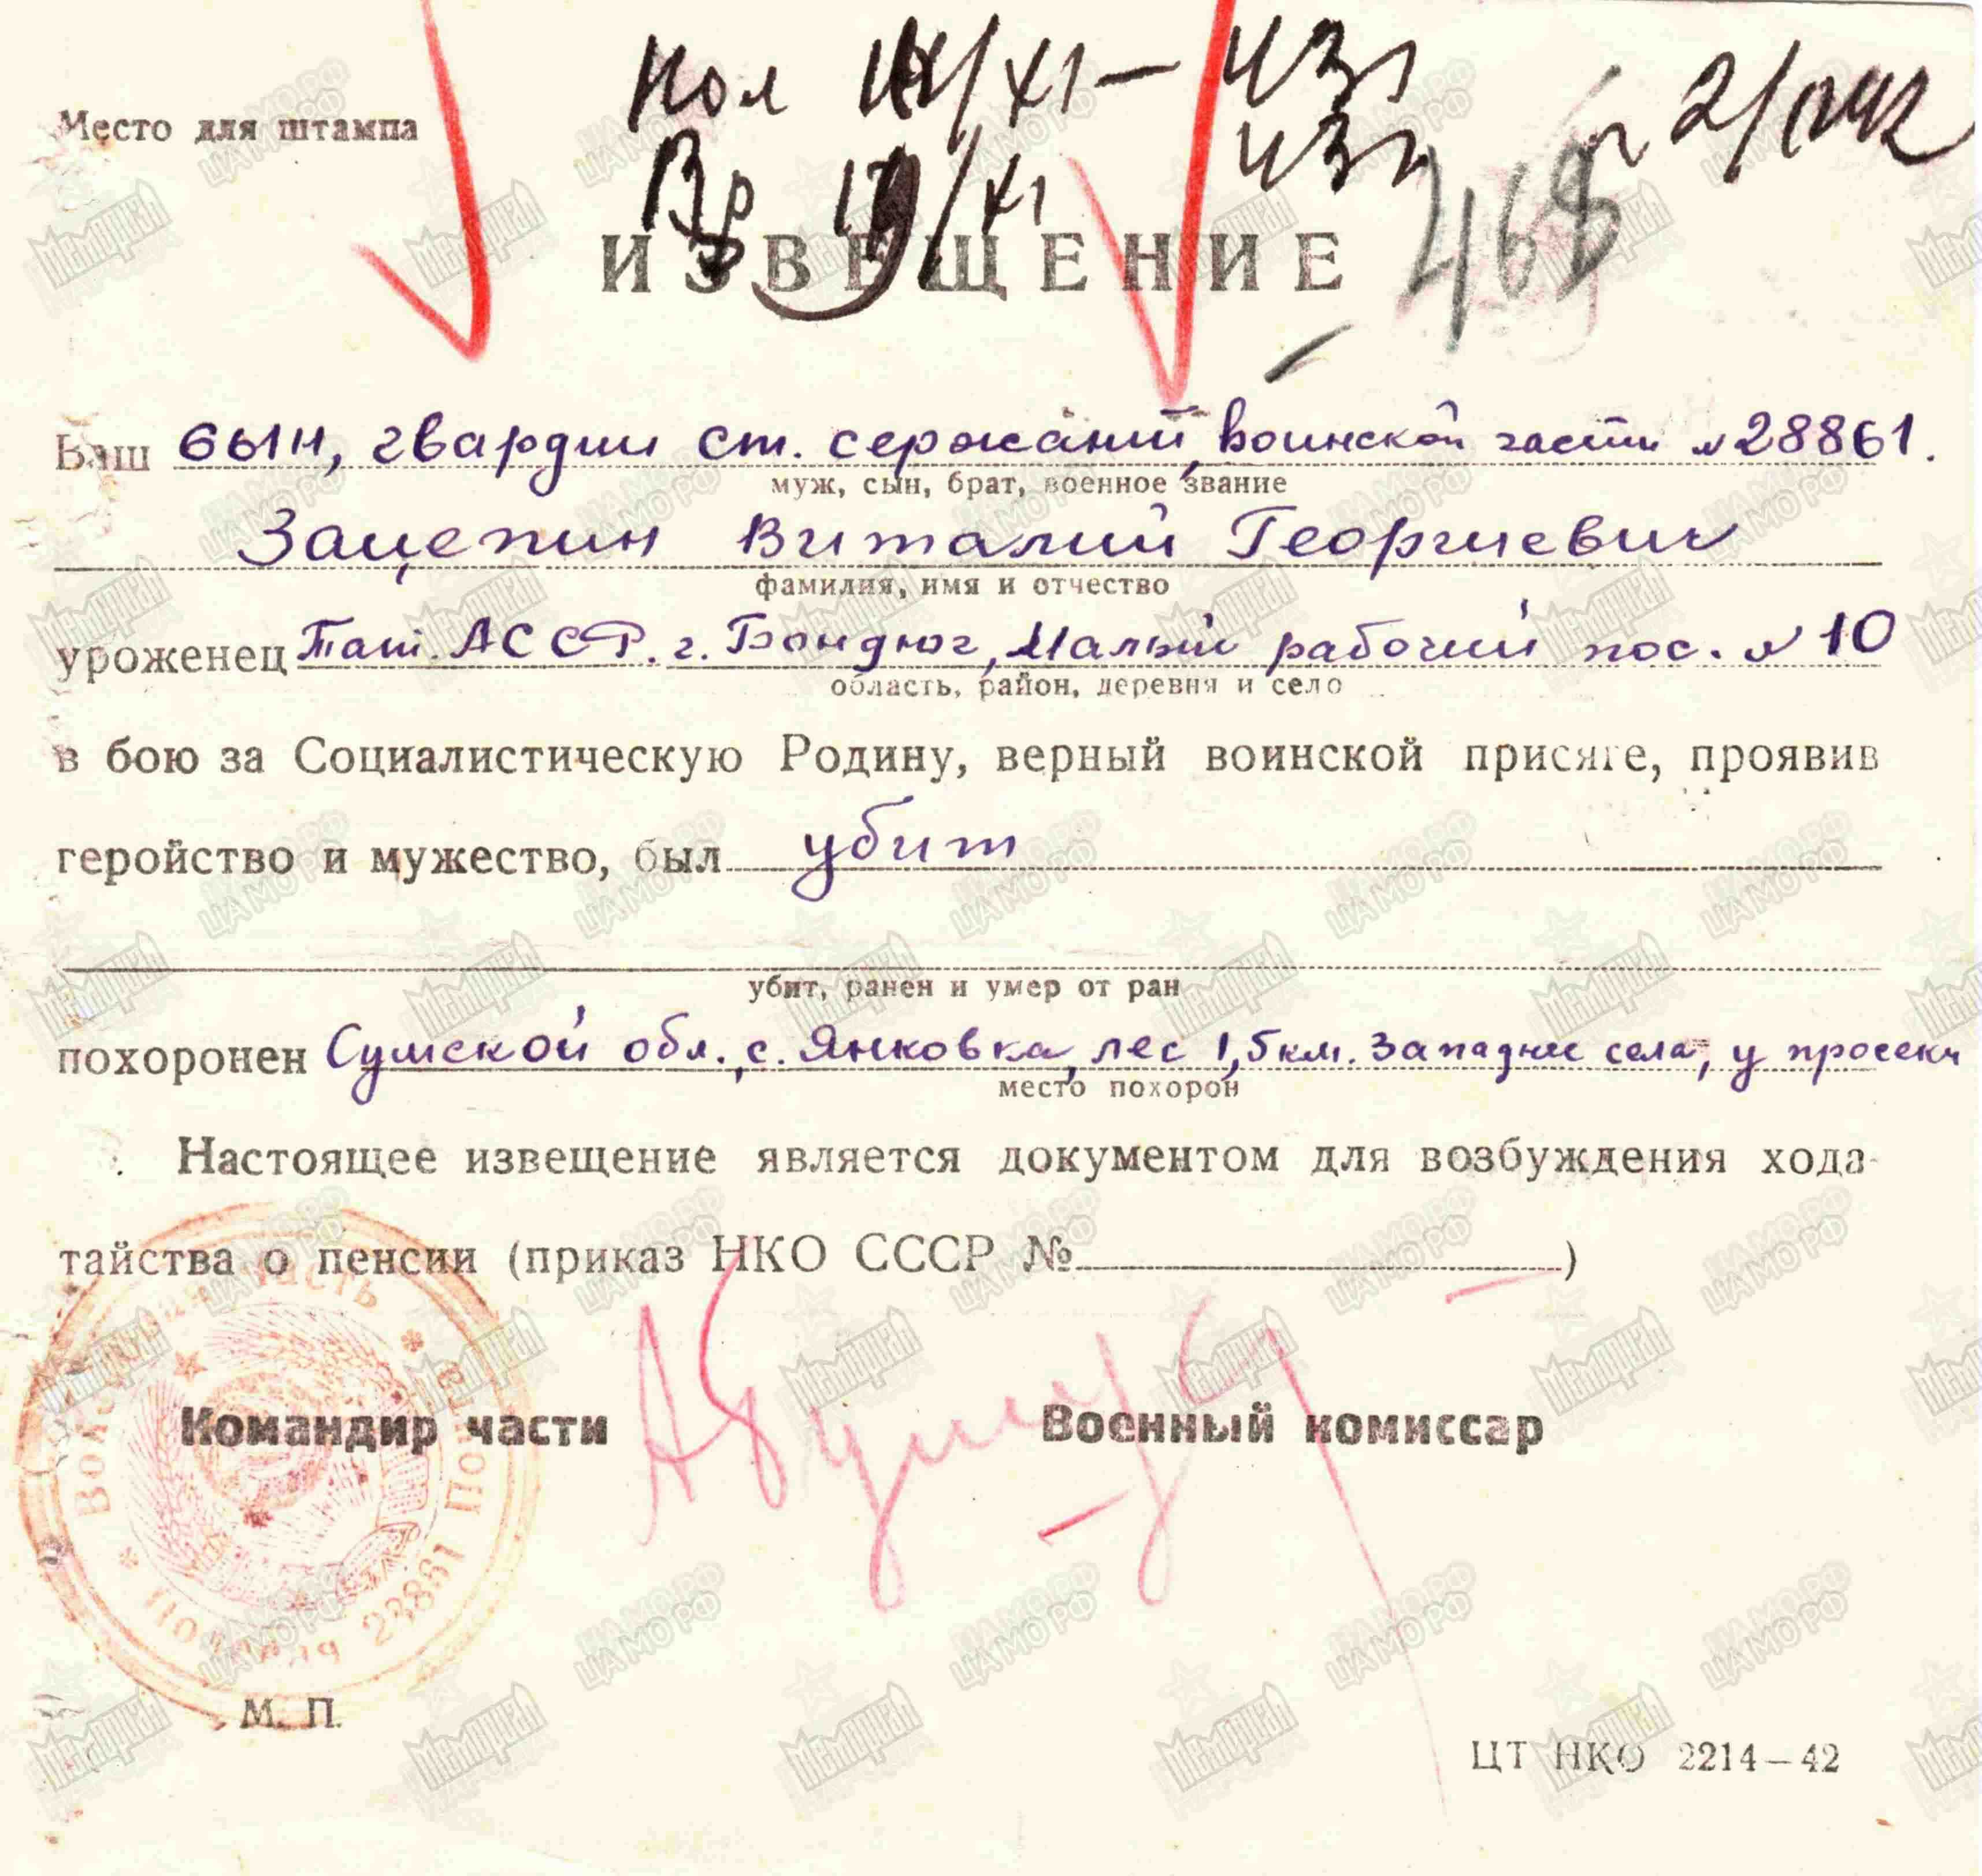 Место для штампа
Пол 14/XI – 43г
Вр 19/XI 43г
468
ИЗВЕЩЕНИЕ
Ваш сын, гвардии ст. сержант, воинской части № 28861.
муж, сын, брат, военное звание
Зацепин Виталий Георгиевич
фамилия, имя и отчество
уроженец Тат. АССР. г. Бондюг, Малый рабочий пос. № 10
область, район, деревня и село
в бою за Социалистическую Родину, верный воинской присяге, проявив
геройство и мужество, был убит
убит, ранен и умер от ран
похоронен Сумской обл., с. Янковка, лес 1,5 км. западнее села, у просеки
место похорон
Настоящее извещение является документом для возбуждения хода-
тайства о пенсии (приказ НКО СССР № )
Командир части Военный комиссар
Войсковая часть
Полевая почта
28861
М. П.
ЦТ НКО 2214—42
Мемориал
ЦАМО РФ